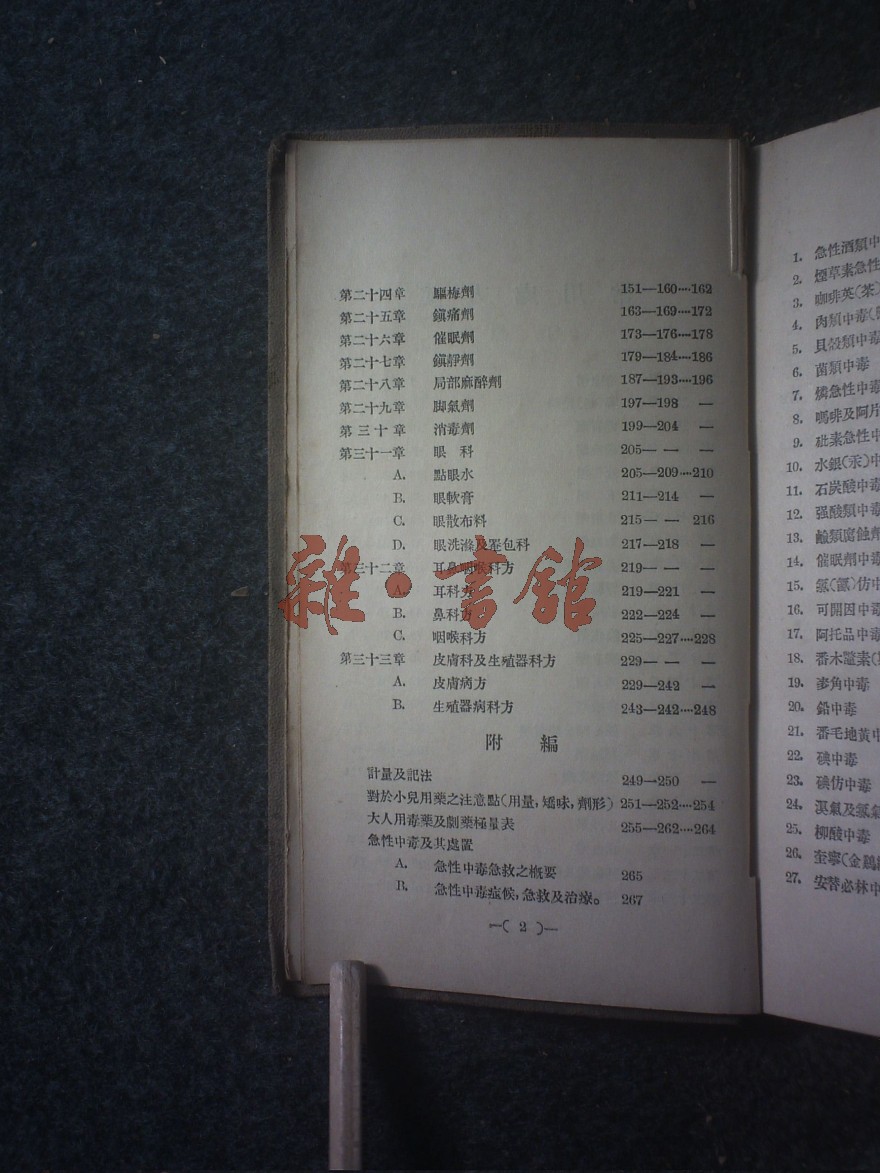 第二十四章 驅梅劑 151—160····162
第二十五章 鎮痛劑 163—169····172
第二十六章 催眠劑 173—176····178
第二十七章 鎮靜劑 179—184····186
第二十八章 局部麻醉劑 187—193····196
第二十九章 脚氣劑 197—198 —
第三十章 消毒劑 199—204 —
第三十一章 眼科 205— — —
A. 點眼水 205—209····210
B. 眼軟膏 211—214 —
C. 眼散布料 215— — 216
D. 眼洗滌及罨包科 217—218 —
第三十二章 耳鼻咽喉科方 219— — —
A. 耳科方 219—221 —
B. 鼻科方 222—224 —
C. 咽喉科方 225—227····228
第三十三章 皮膚科及生殖器科方 229— — —
A. 皮膚病方 229—242 —
B. 生殖器病科方 243—242····248
附編
計量及記法 249—250 —
對於小兒用藥之注意點(用量,矯味,劑形) 251—252····254
大人用毒藥及劇藥極量表 255—262····264
急性中毒及其處置
A. 急性中毒急救之概要 265
B. 急性中毒症候,急救及治療。 267
—( 2 )—
雜·書館
1. 急性酒類中
2. 煙草素急性
3. 咖啡英(茶)
4. 肉類中毒
5. 貝殼類中毒
6. 菌類中毒
7. 燐急性中毒
8. 嗎啡及阿片
9. 砒素急性中
10. 水銀(汞)中
11. 石炭酸中毒
12. 强酸類中毒
13. 鹼類腐蝕劑
14. 催眠劑中毒
15. 氯(氯)仿中
16. 可開因中毒
17. 阿托品中毒
18. 番木鼈素
19. 麥角中毒
20. 鉛中毒
21. 番毛地黃中
22. 碘中毒
23. 碘仿中毒
24. 溴氣及氯氣
25. 柳酸中毒
26. 奎寧(金鷄
27. 安替必林中